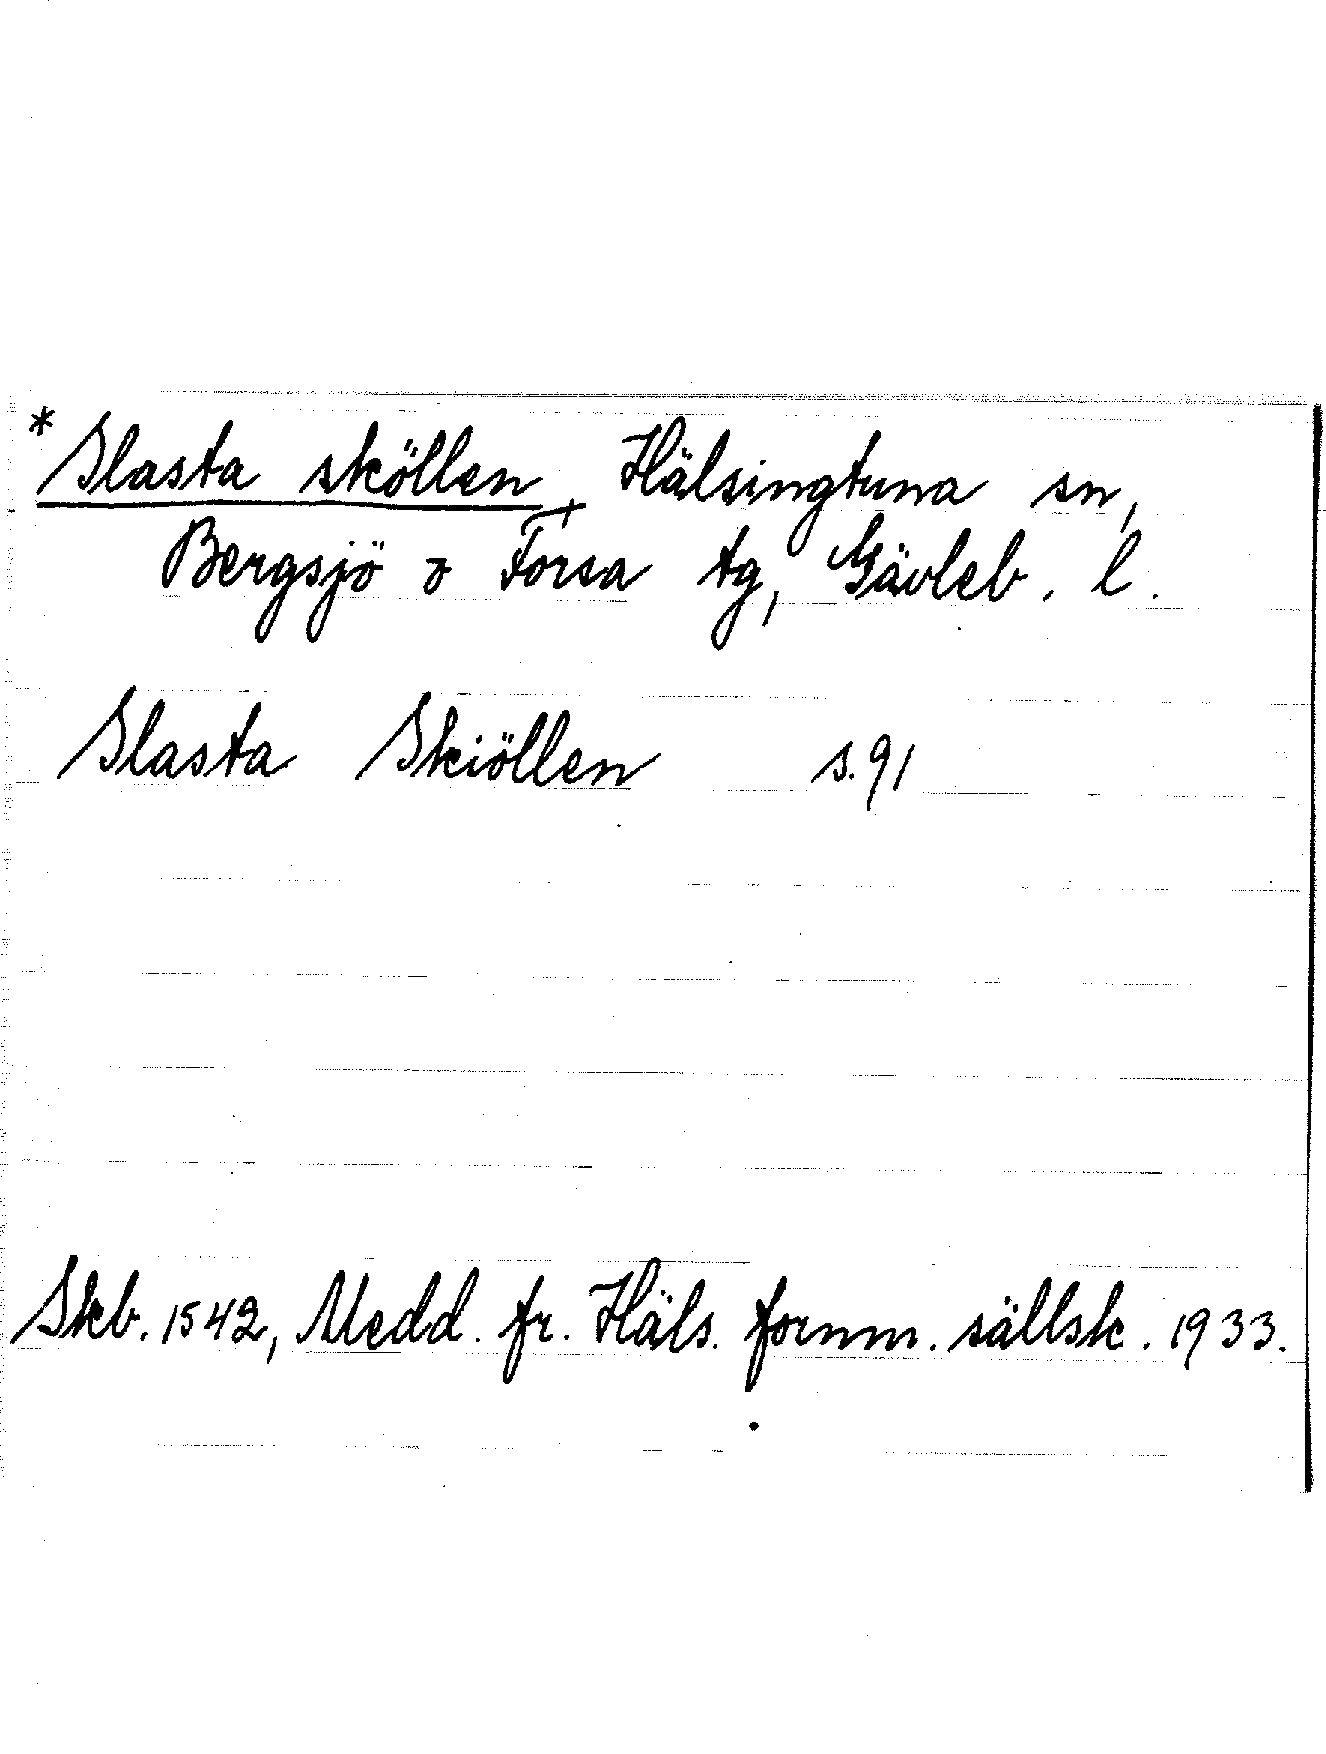 *Slasta sköllen, Hälsingtuna sn,
Bergsjö o Forsa tg, Gävleb. l.
Slasta Skiöllen s. 91
Skb. 1542, Medd. fr. Häls. fornm. sällsk. 1933.